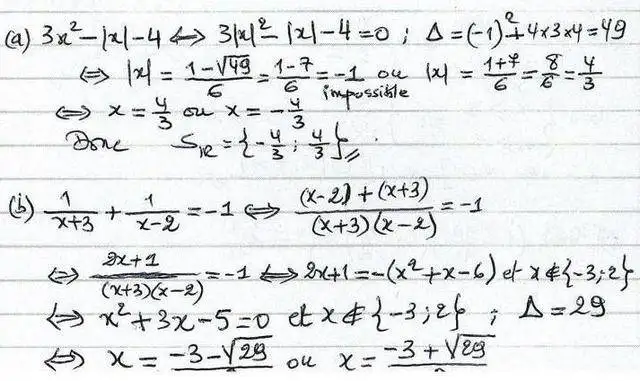 (a) 3x² - |x| - 4 ⇔ 3|x|² - |x| - 4 = 0 ; Δ = (-1)² + 4×3×4 = 49
⇔ |x| = (1-√49)/6 = (1-7)/6 = -1 impossible ou |x| = (1+7)/6 = 8/6 = 4/3
⇔ x = 4/3 ou x = -4/3
Donc S_IR = {-4/3 ; 4/3}
(b) 1/(x+3) + 1/(x-2) = -1 ⇔ ((x-2)+(x+3))/((x+3)(x-2)) = -1
⇔ (2x+1)/((x+3)(x-2)) = -1 ⇔ 2x+1 = -(x²+x-6) et x ∉ {-3;2}
⇔ x²+3x-5=0 et x ∉ {-3;2} ; Δ = 29
⇔ x = -3-√29 ou x = -3+√29